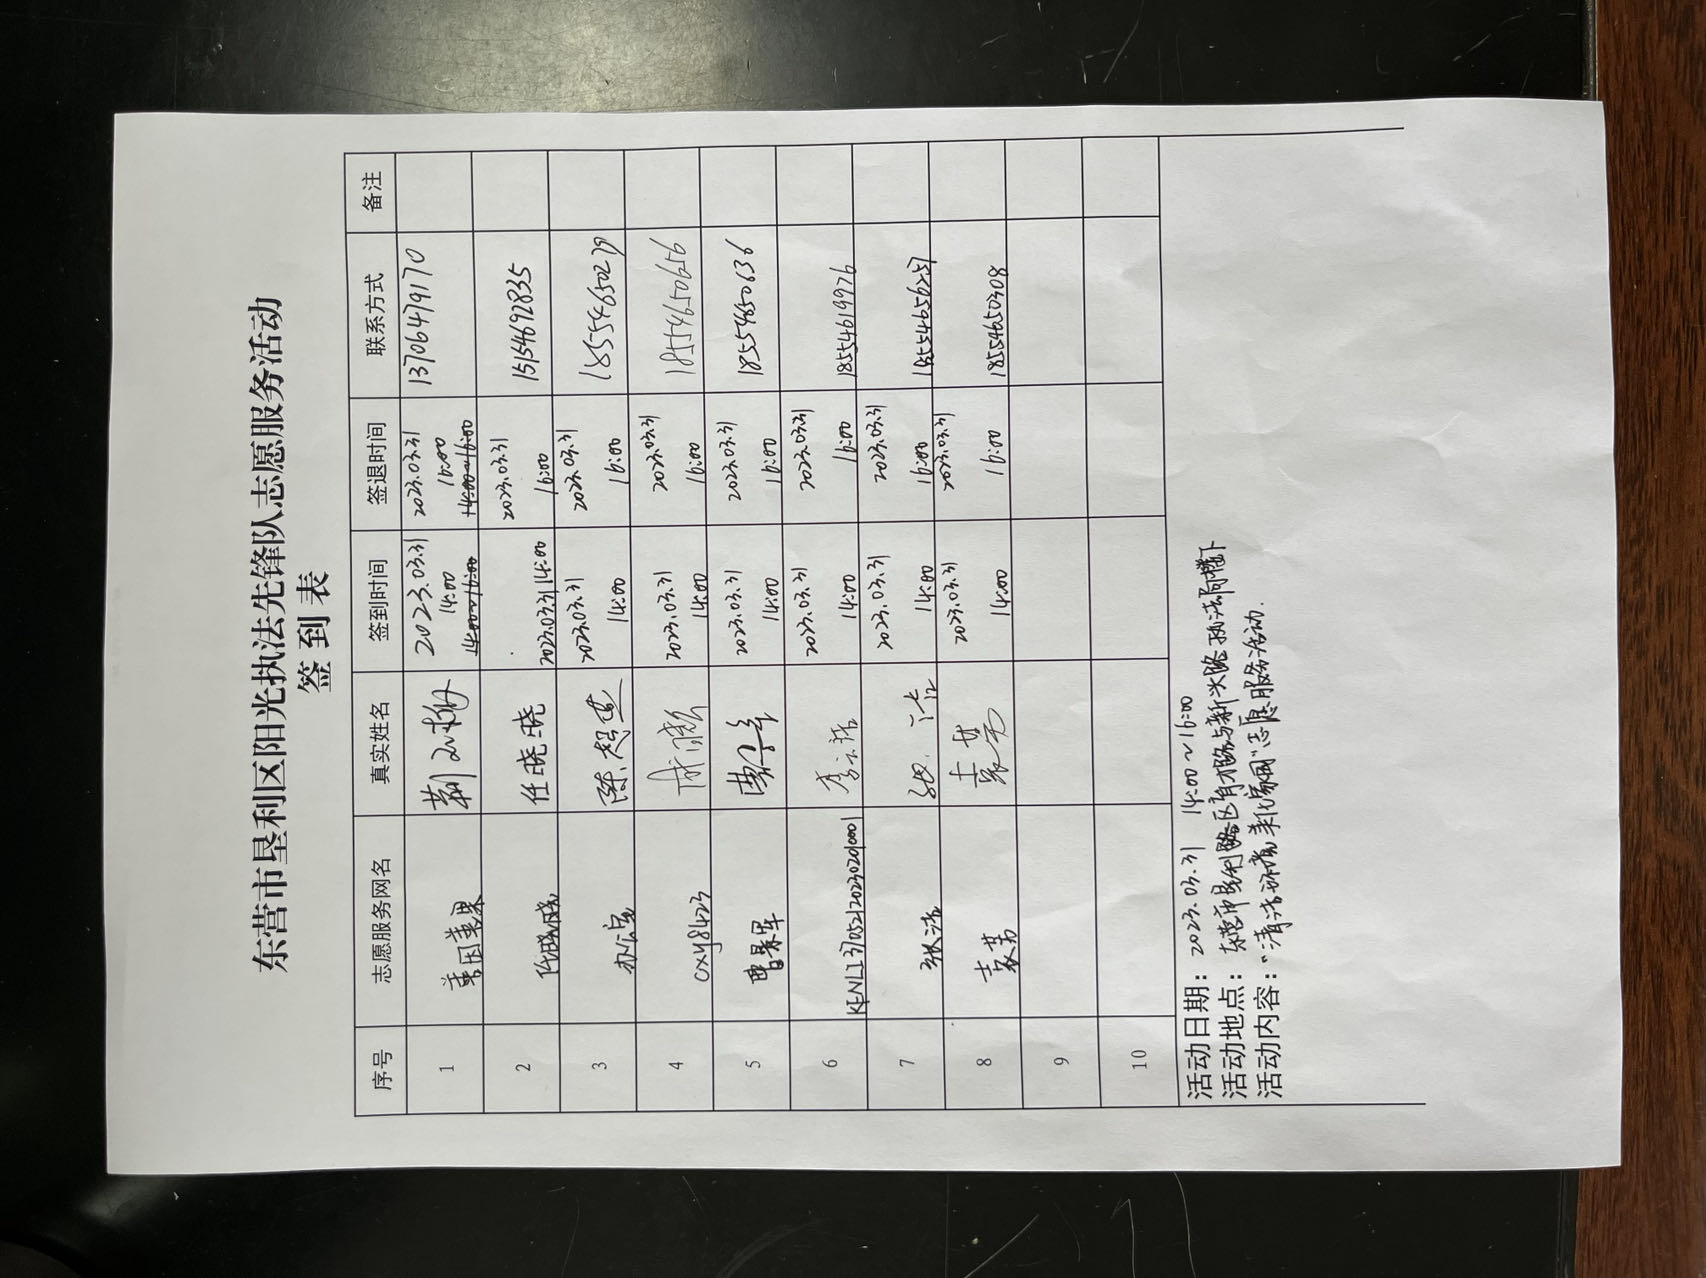 东营市垦利区阳光执法先锋队志愿服务活动
签到表
序号 志愿服务网名 真实姓名 签到时间 签退时间 联系方式 备注
1 2023.03.31 14:00 14:00~16:00 2023.03.31 16:00 14:00~16:00 13706479170
2 任晓晓 任晓晓 2023.03.31 14:00 2023.03.31 16:00 15154692835
3 办公室 陈超 2023.03.31 14:00 2023.03.31 16:00 18554650279
4 cxy8423 2023.03.31 14:00 2023.03.31 16:00 18554650656
5 曹景军 曹 军 2023.03.31 14:00 2023.03.31 16:00 18554650636
6 KENLI370521202302010001 李 2023.03.31 14:00 2023.03.31 16:00 18554619976
7 张洁 张洁 2023.03.31 14:00 2023.03.31 16:00 18554656257
8 袁芳 袁芳 2023.03.31 14:00 2023.03.31 16:00 18554650308
9
10
活动日期：2023.03.31 14:00~16:00
活动地点：东营市垦利区 路与新兴路执法局楼下
活动内容：“清洁环境 美化家园”志愿服务活动.